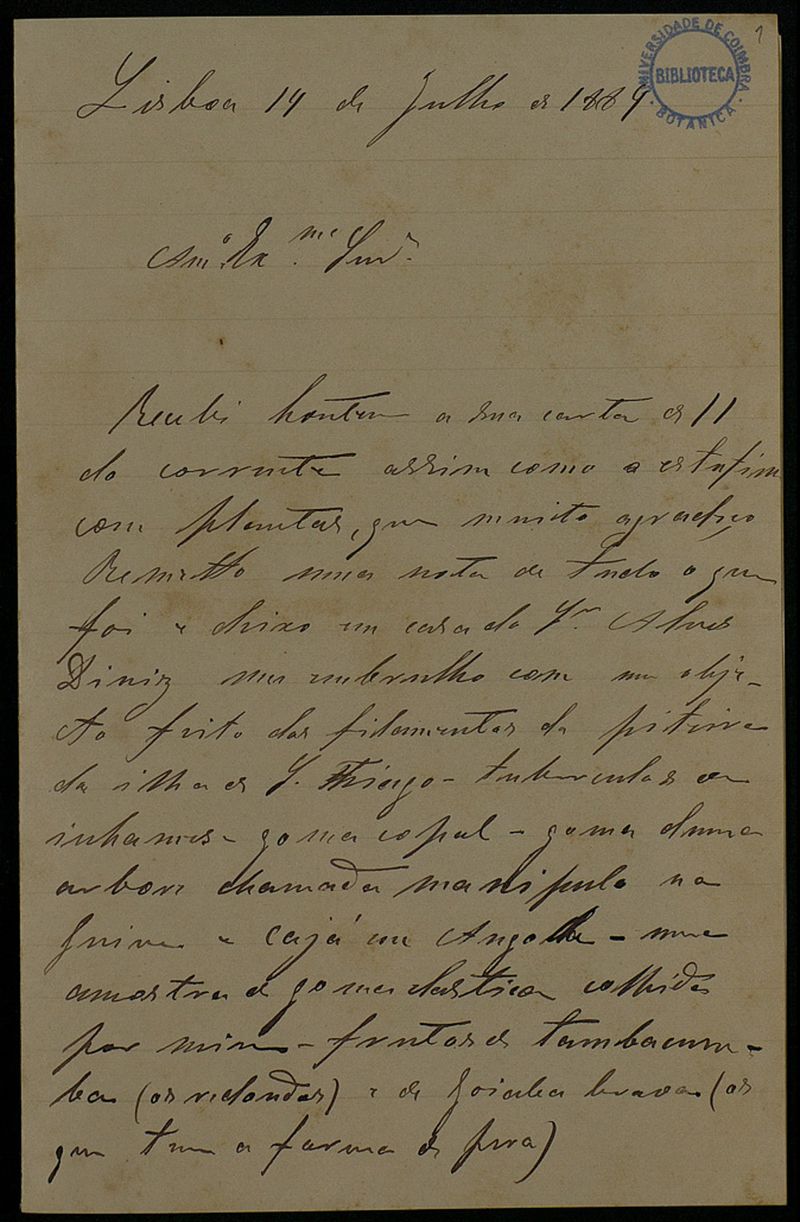 1
UNIVERSIDADE DE COIMBRA
BIBLIOTECA
BOTANICA
Lisboa 14 de Julho de 1889
Amº. Exmo. Snr.
Recebi hontem a sua carta de 11
do corrente assim como a estufim
com plantas, que muito agradeço
Remetto uma nota de tudo o que
foi e deixo em casa do Sr. Alves
Diniz um embrulho com um obje-
cto feito dos filamentos da piteira
da ilha de S. Thiago - tuberculos de
inhames - goma copal - goma duma
arbore chamada manipulo na
Guiné e Cajá em Angolla - uma
amostra de goma elastica colhida
por mim - frutos de tambacum-
ba (os redondos) e de Goiaba brava (os
que tem a forma de pera)